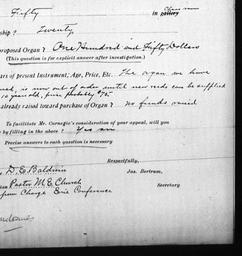 Fifty
ship? Twenty
proposed Organ? One Hundred and Fifty Dollars
(This question is for explicit answer after investigation.)
ars of present Instrument; Age, Price, Etc. The organ we have
used, is now out of order until new reeds can be supplied
10 years old, price probably $75.
already raised toward purchase of Organ? No funds raised
To facilitate Mr. Carnegie's consideration of your appeal, will you
by filling in the above? Yes
Precise answers to each question is necessary
Respectfully,
D. E. Baldwin
Jas. Bertram,
Pastor M. E. Church
Secretary
Charge Erie Conference